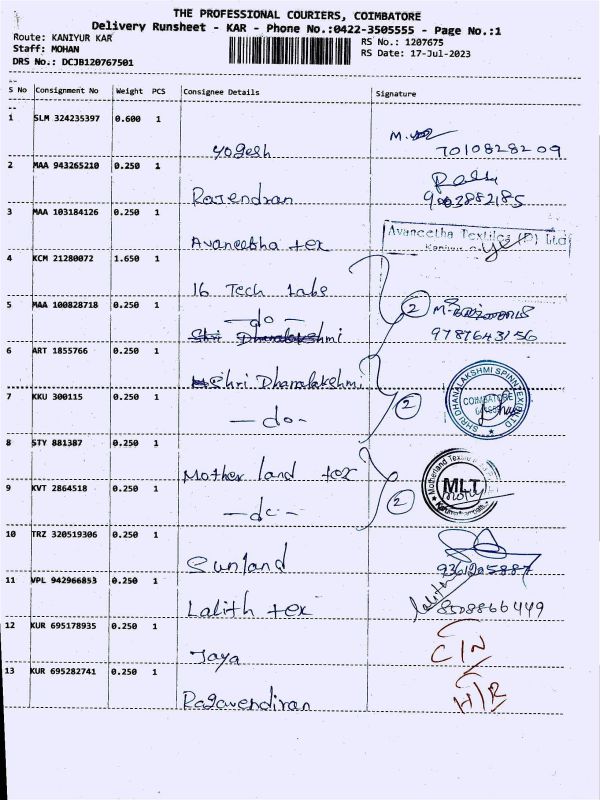 THE PROFESSIONAL COURIERS, COIMBATORE
Delivery Runsheet - KAR - Phone No.:0422-3505555 - Page No.:1
Route: KANIYUR KAR
Staff: MOHAN
DRS No.: DCJB120767501
RS No.: 1207675
RS Date: 17-Jul-2023
S No Consignment No Weight PCS Consignee Details Signature
1 SLM 324235397 0.600 1 yogesh M. 7010828209
2 MAA 943265210 0.250 1 Rajendran 9003882185
3 MAA 103184126 0.250 1 Avaneetha tex Avaneetha Textiles (P) Ltd
4 KCM 21280072 1.650 1 16 Tech Labs
5 MAA 100828718 0.250 1 —do— 2 9787643156
Shri Dhanalakshmi
6 ART 1855766 0.250 1 Shri Dhanalakshmi
7 KKU 300115 0.250 1 —do- 2 SHRI DHANALAKSHMI SPINNTEX COIMBATORE
8 STY 881387 0.250 1 Mother land tex
9 KVT 2864518 0.250 1 —do- 2 Motherland MLT
10 TRZ 320519306 0.250 1 Sunland 9361205887
11 VPL 942966853 0.250 1 Lalith tex Lalith 8508866449
12 KUR 695178935 0.250 1 Jaya C/N
13 KUR 695282741 0.250 1 Ragavendiran H/R